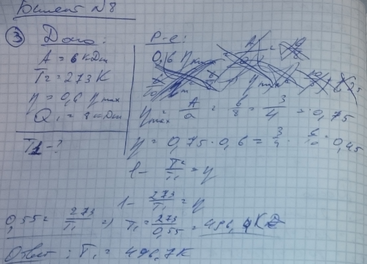 Вариант №8
③ Дано:
A = 6 кДж
T₂ = 273 К
η = 0,6 ηmax
T1 - ?
Р-е:
0,6 ηmax
ηmax = A/Q = 6/8 = 3/4 = 0,75
η = 0,75 · 0,6 = 0,45
1 - T₂/T₁ = η
1 - 273/T₁ = η
0,55 = 273/T₁ => T₁ = 273/0,55 =
Ответ: T₁ = 496,7 К